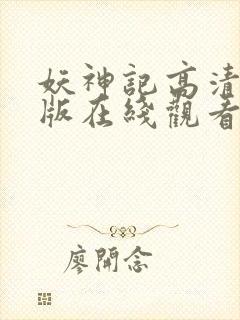 妖神記高清
版在綫觀看
廖開念